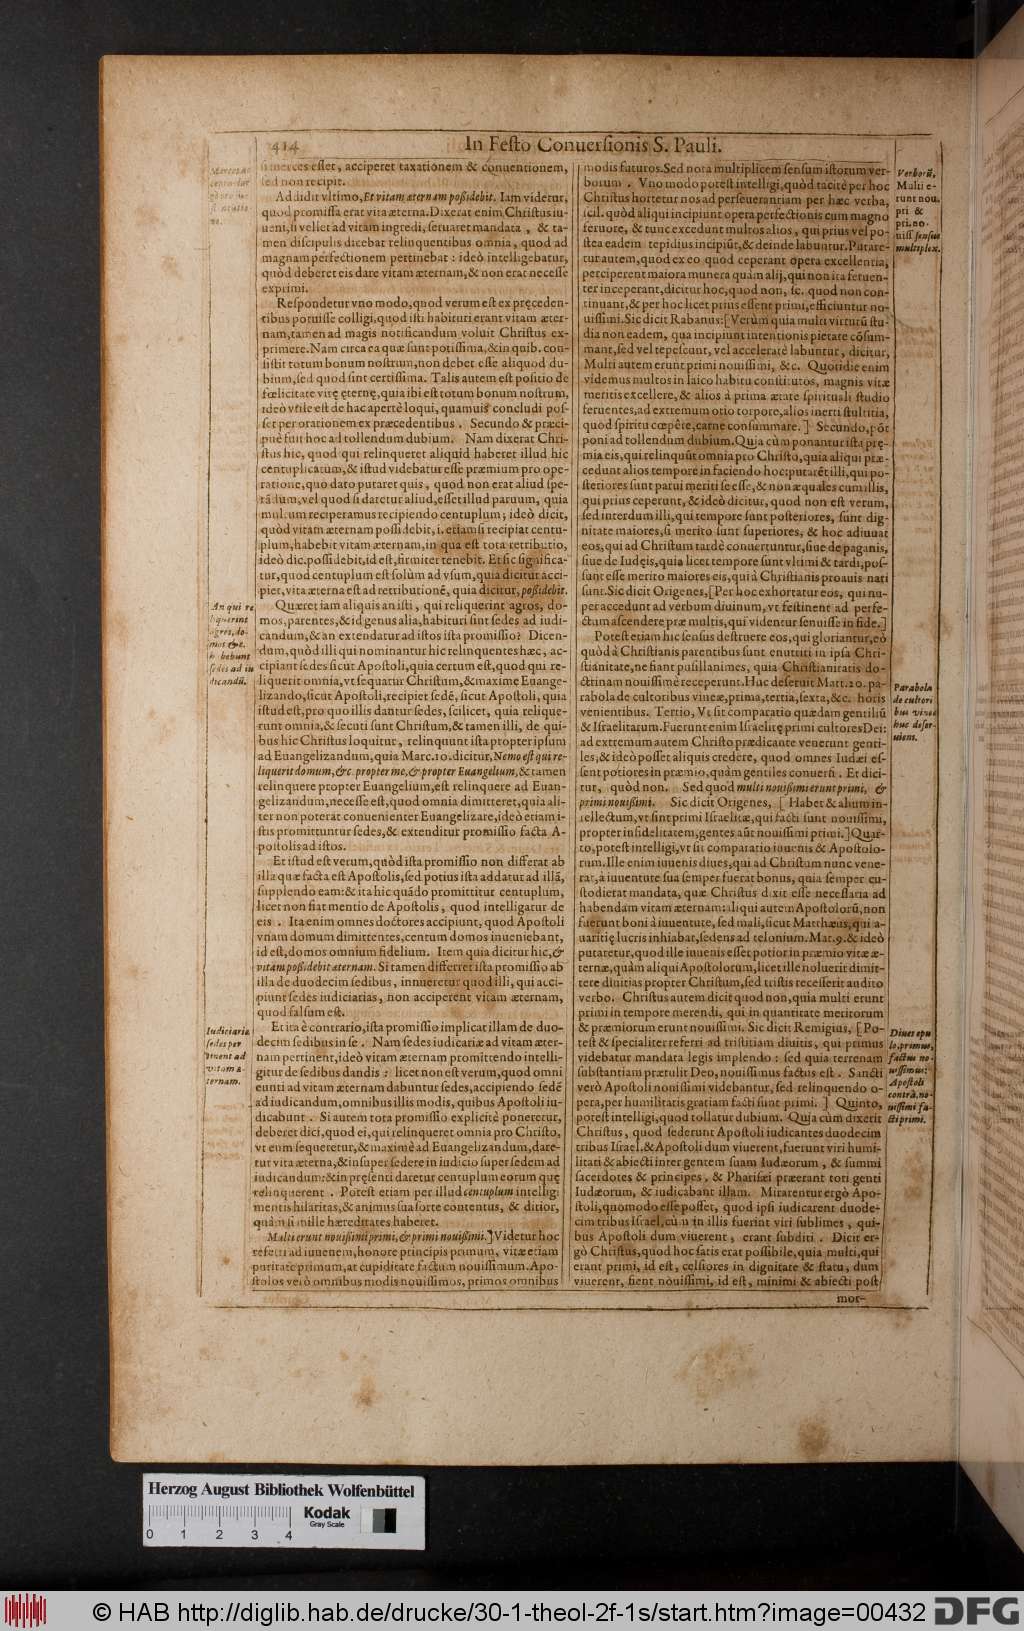 414
In Festo Conuersionis S. Pauli.
si merces esset, acciperet taxationem & conuentionem,
sed non recipit.
Addidit vltimo, Et vitam æternam poßidebit. Iam videtur,
quod promissa erat vita æterna. Dixerat enim Christus iu-
ueni, si vellet ad vitam ingredi, seruaret mandata, & ta-
men discipulis dicebat relinquentibus omnia, quod ad
magnam perfectionem pertinebat: ideò intelligebatur,
quòd deberet eis dare vitam æternam, & non erat necesse
exprimi.
Respondetur vno modo, quod verum est ex pręceden-
tibus potuisse colligi, quod isti habituri erant vitam æter-
nam, tamen ad magis notificandum voluit Christus ex-
primere. Nam circa ea quæ sunt potissima, & in quib. con-
sistit totum bonum nostrum, non debet esse aliquod du-
bium, sed quod sint certissima. Talis autem est positio de
fœlicitate vitę ęternę, quia ibi est totum bonum nostrum,
ideo vtile est de hac apertè loqui, quamuis concludi pos-
set per orationem ex præcedentibus. Secundo & præci-
puè fuit hoc ad tollendum dubium. Nam dixerat Chri-
stus hic, quod qui relinqueret aliquid haberet illud hic
centuplicatum, & istud videbatur esse præmium pro ope-
ratione, quo dato putaret quis, quod non erat aliud spe-
rādum, vel quod si daretur aliud, esset illud paruum, quia
multum reciperamus recipiendo centuplum; ideò dicit,
quòd vitam æternam possidebit, i. etiam si recipiat centu-
plum, habebit vitam æternam, in qua est tota retributio,
ideò dic. possidebit, id est, firmiter tenebit. Et sic significa-
tur, quod centuplum est solùm ad vsum, quia dicitur acci-
piet, vita æterna est ad retributionē, quia dicitur, poßidebit.
Quæret iam aliquis an isti, qui reliquerint agros, do-
mos, parentes, & id genus alia, habituri sint sedes ad iudi-
candum, & an extendatur ad istos ista promissio? Dicen-
dum, quòd illi qui nominantur hic relinquentes hæc, ac-
cipiant sedes sicut Apostoli, quia certum est, quod qui re-
liquerit omnia, vt sequatur Christum, & maxime Euange-
lizando, sicut Apostoli, recipiet sedē, sicut Apostoli, quia
istud est, pro quo illis dantur sedes, scilicet, quia relique-
runt omnia, & secuti sunt Christum, & tamen illi, de qui-
bus hic Christus loquitur, relinquunt ista propter ipsum
ad Euangelizandum, quia Marc. 10. dicitur, Nemo est qui re-
liquerit domum, &c. propter me, & propter Euangelium, & tamen
relinquere propter Euangelium, est relinquere ad Euan-
gelizandum, necesse est, quod omnia dimitteret, quia ali-
ter non poterat conuenienter Euangelizare, ideò etiam i-
stis promittuntur sedes, & extenditur promissio facta A-
postolis ad istos.
Et istud est verum, quòd ista promissio non differat ab
illa quæ facta est Apostolis, sed potius ista addatur ad illā,
supplendo eam: & ita hic quādo promittitur centuplum,
licet non fiat mentio de Apostolis, quod intelligatur de
eis. Ita enim omnes doctores accipiunt, quod Apostoli
vnam domum dimittentes, centum domos inueniebant,
id est, domos omnium fidelium. Item quia dicitur hic, &
vitam poßidebit æternam. Si tamen differret ista promissio ab
illa de duodecim sedibus, innueretur quod illi, qui acci-
piunt sedes iudiciarias, non acciperent vitam æternam,
quod falsum est.
Et ita è contrario, ista promissio implicat illam de duo-
decim sedibus in se. Nam sedes iudicariæ ad vitam æter-
nam pertinent, ideò vitam æternam promittendo intelli-
gitur de sedibus dandis: licet non est verum, quod omni
eunti ad vitam æternam dabuntur sedes, accipiendo sedē
ad iudicandum, omnibus illis modis, quibus Apostoli iu-
dicabunt. Si autem tota promissio explicitè poneretur,
deberet dici, quod ei, qui relinqueret omnia pro Christo,
vt eum sequeretur, & maximè ad Euangelizandum, dare-
tur vita æterna, & insuper sedere in iudicio super sedem ad
iudicandum: & in pręsenti daretur centuplum eorum quę
relinquerent. Potest etiam per illud centuplum intelligi
mentis hilaritas, & animus sua sorte contentus, & ditior,
quàm si mille hæreditates haberet.
Multi erunt nouißimi primi, & primi nouißimi.] Videtur hoc
referri ad iuuenem, honore principis primum, vitæ etiam
puritate primum, at cupiditate factum nouissimum. Apo-
stolos verò omnibus modis nouissimos, primos omnibus
An qui re
liquerint
agros, do-
mos &c.
habebunt
sedes ad iu
dicandū.
Iudiciariæ
sedes per
tinent ad
vitam æ-
ternam.
modis futuros. Sed nota multiplicem sensum istorum ver-
borum. Vno modo potest intelligi, quòd tacitè per hoc
Christus hortetur nos ad perseuerantiam per hæc verba,
scil. quòd aliqui incipiunt opera perfectionis cum magno
feruore, & tunc excedunt multos alios, qui prius vel po-
stea eadem tepidius incipiūt, & deinde labuntur. Putare-
tur autem, quod ex eo quod ceperant opera excellentia,
perciperent maiora munera quàm alij, qui non ita feruen-
ter inceperant, dicitur hoc, quod non, sc. quod non con-
tinuant, & per hoc licet prius essent primi, efficiuntur no-
uissimi. Sic dicit Rabanus: [Verùm quia multi virtutū stu-
dia non eadem, qua incipiunt intentionis pietate cōsum-
mant, sed vel tepescunt, vel acceleratè labuntur, dicitur,
Multi autem erunt primi nouissimi, &c. Quotidie enim
videmus multos in laico habitu constitutos, magnis vitæ
meritis excellere, & alios à prima ætate spirituali studio
feruentes, ad extremum otio torpore, alios inerti stultitia,
quod spiritu cœpêre, carne consummare.] Secundo, pōt
poni ad tollendum dubium. Quia cùm ponantur ista prę-
mia eis, qui relinquūt omnia pro Christo, quia aliqui præ-
cedunt alios tempore in faciendo hoc: putarēt illi, qui po-
steriores sunt parui meriti se esse, & non æquales cum illis,
qui prius ceperunt, & ideò dicitur, quod non est verum,
sed interdum illi, qui tempore sunt posteriores, sunt dig-
nitate maiores, si merito sunt superiores, & hoc adiuuat
eos, qui ad Christum tardè conuertuntur, siue de paganis,
siue de Iudęis, quia licet tempore sunt vltimi & tardi, pos-
sunt esse merito maiores eis, qui à Christianis proauis nati
sunt. Sic dicit Origenes, [Per hoc exhortatur eos, qui nu-
per accedunt ad verbum diuinum, vt festinent ad perfe-
ctum ascendere præ multis, qui videntur senuisse in fide.]
Potest etiam hic sensus destruere eos, qui gloriantur, eò
quòd à Christianis parentibus sunt enutriti in ipsa Chri-
stianitate, ne fiant pusillanimes, quia Christianitatis do-
ctrinam nouissimè receperunt. Huc deseruit Matt. 20. pa-
rabola de cultoribus vineæ, prima, tertia, sexta, &c. horis
venientibus. Tertio, Vt sit comparatio quædam gentiliū
& Israelitarum. Fuerunt enim Israelitę primi cultores Dei:
ad extremum autem Christo prædicante venerunt genti-
les; & ideò posset aliquis credere, quod omnes Iudæi es-
sent potiores in præmio, quàm gentiles conuersi. Et dici-
tur, quòd non. Sed quod multi nouißimi erunt primi, &
primi nouißimi. Sic dicit Origenes, [Habet & alium in-
tellectum, vt sint primi Israelitæ, qui facti sunt nouissimi,
propter infidelitatem, gentes aūt nouissimi primi.] Quar-
to, potest intelligi, vt sit comparatio iuuenis & Apostolo-
rum. Ille enim iuuenis diues, qui ad Christum nunc vene-
rat, à iuuentute sua semper fuerat bonus, quia semper cu-
stodierat mandata, quæ Christus dixit esse necessaria ad
habendam vitam æternam: aliqui autem Apostolorū, non
fuerunt boni à iuuentute, sed mali, sicut Matthæus, qui a-
uaritię lucris inhiabat, sedens ad telonium. Mat. 9. & ideò
putaretur, quod ille iuuenis esset potior in præmio vitæ æ-
ternæ, quàm aliqui Apostolorum, licet ille noluerit dimit-
tere diuitias propter Christum, sed tristis recesserit audito
verbo. Christus autem dicit quod non, quia multi erunt
primi in tempore merendi, qui in quantitate meritorum
& præmiorum erunt nouissimi. Sic dicit Remigius, [Po-
test & specialiter referri ad tristitiam diuitis, qui primus
videbatur mandata legis implendo: sed quia terrenam
substantiam prætulit Deo, nouissimus factus est. Sancti
verò Apostoli nouissimi videbantur, sed relinquendo o-
pera, per humilitatis gratiam facti sunt primi.] Quinto,
potest intelligi, quod tollatur dubium. Quia cùm dixerit
Christus, quod sederunt Apostoli iudicantes duodecim
tribus Israel, & Apostoli dum viuerent, fuerunt viri humi-
litati & abiecti inter gentem suam Iudæorum, & summi
sacerdotes & principes, & Pharisæi præerant toti genti
Iudæorum, & iudicabant illam. Mirarentur ergò Apo-
stoli, quomodo esse posset, quod ipsi iudicarent duode-
cim tribus Israel, cùm in illis fuerint viri sublimes, qui-
bus Apostoli dum viuerent, erant subditi. Dicit er-
gò Christus, quod hoc satis erat possibile, quia multi, qui
erant primi, id est, celsiores in dignitate & statu, dum
viuerent, fient nouissimi, id est, minimi & abiecti post
mor-
Verborū,
Multi e-
runt nou.
pri &
pri. no-
uiss sensus
multiplex.
Parabola
de cultori
bus vineæ
huc deser-
uiens.
Diues epu
lo, primus,
factus no-
uissimus:
Apostoli
contrà, no-
uissimi fa-
cti primi.
Herzog August Bibliothek Wolfenbüttel
Kodak
Gray Scale
0 1 2 3 4
© HAB http://diglib.hab.de/drucke/30-1-theol-2f-1s/start.htm?image=00432
DFG